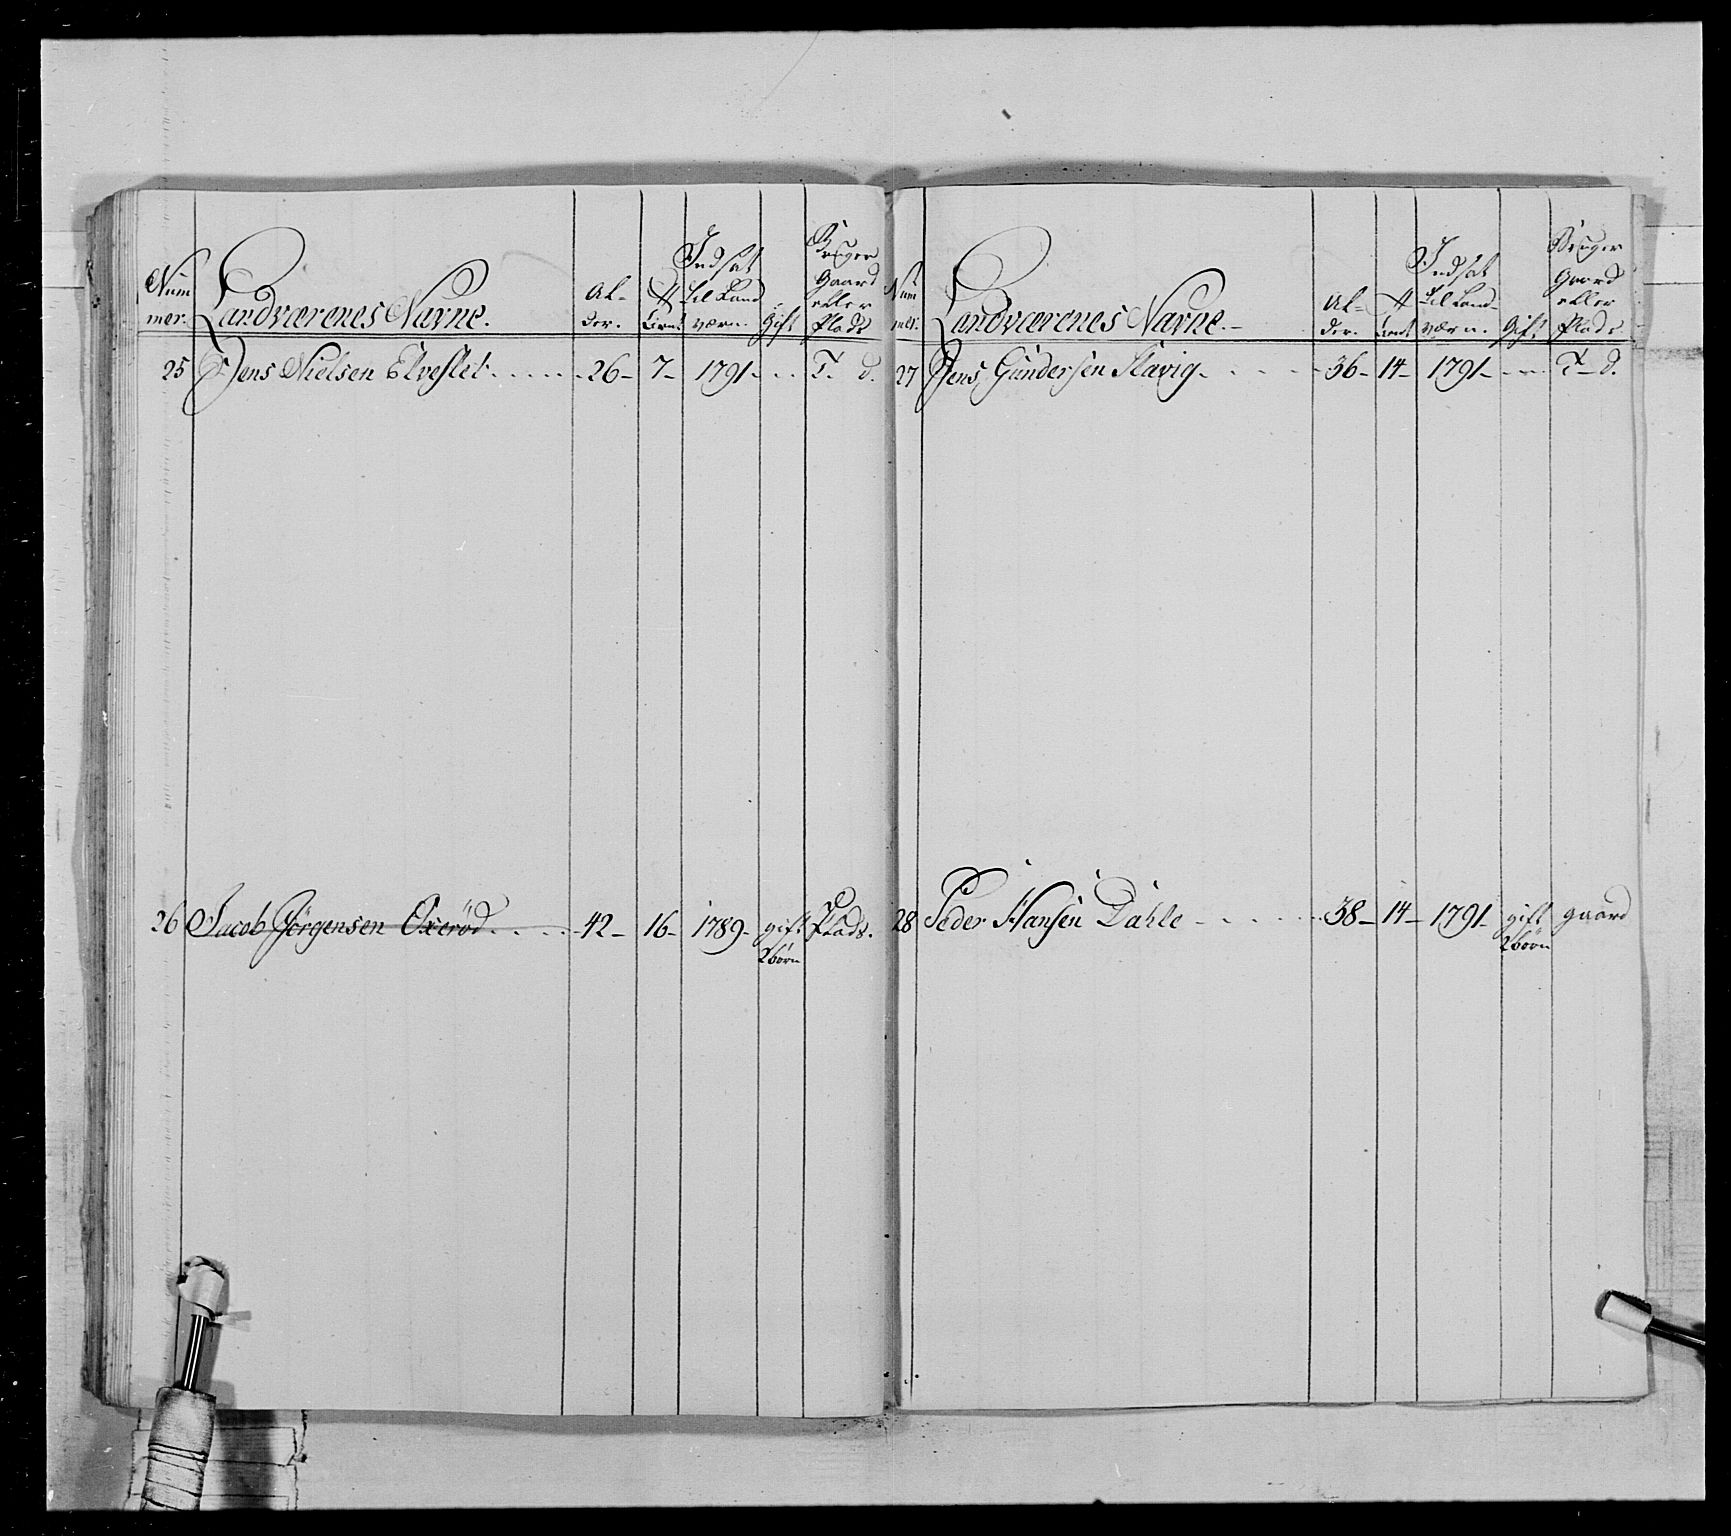 Num
mer.
Landværenes Navne.
Al-
der.
Tient
Indsat
til Land
værn.
Gift
Bruger
Gaard
eller
Plads
25 Jens Nielsen Elveslet 26 - 7 - 1791 - T. d.
26 Jacob Jørgensen Oxerød 42 - 16 - 1789 - gift Plads.
2 børn
Num
mer.
Landværenes Navne.
Al-
der.
Tient
Indsat
til Land-
værn.
Gift
Bruger
Gaard
eller
Plads
27 Jens Gundersen Slavig 36 - 14 - 1791 - T - d.
28 Peder Hansen Dahle 38 - 14 - 1791 - gift gaard
2 børn